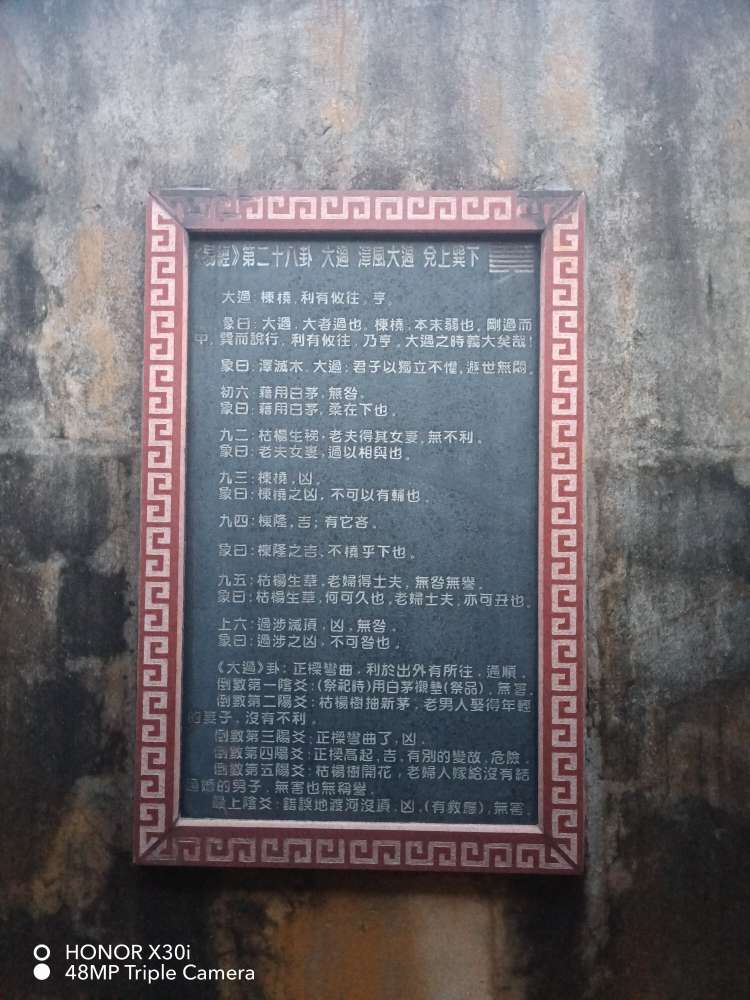 《易經》第二十八卦 大過 澤風大過 兌上巽下
大過：棟橈，利有攸往，亨。
彖曰：大過，大者過也。棟橈，本末弱也。剛過而
中，巽而說行，利有攸往，乃亨。大過之時義大矣哉！
象曰：澤滅木，大過；君子以獨立不懼，遯世無悶。
初六：藉用白茅，無咎。
象曰：藉用白茅，柔在下也。
九二：枯楊生稊，老夫得其女妻，無不利。
象曰：老夫女妻，過以相與也。
九三：棟橈，凶。
象曰：棟橈之凶，不可以有輔也。
九四：棟隆，吉；有它吝。
象曰：棟隆之吉，不橈乎下也。
九五：枯楊生華，老婦得士夫，無咎無譽。
象曰：枯楊生華，何可久也。老婦士夫，亦可丑也。
上六：過涉滅頂，凶，無咎。
象曰：過涉之凶，不可咎也。
《大過》卦：正樑彎曲，利於出外有所往，通順。
倒數第一陰爻：(祭祀時)用白茅襯墊(祭品)，無害。
倒數第二陽爻：枯楊樹抽新茅，老男人娶得年輕
的妻子，沒有不利。
倒數第三陽爻：正樑彎曲了，凶。
倒數第四陽爻：正樑高起，吉，有別的變故，危險。
倒數第五陽爻：枯楊樹開花，老婦人嫁給沒有結
過婚的男子，無害也無稱譽。
最上陰爻：錯誤地渡河沒頂，凶，(有救應)，無害。
HONOR X30i
48MP Triple Camera